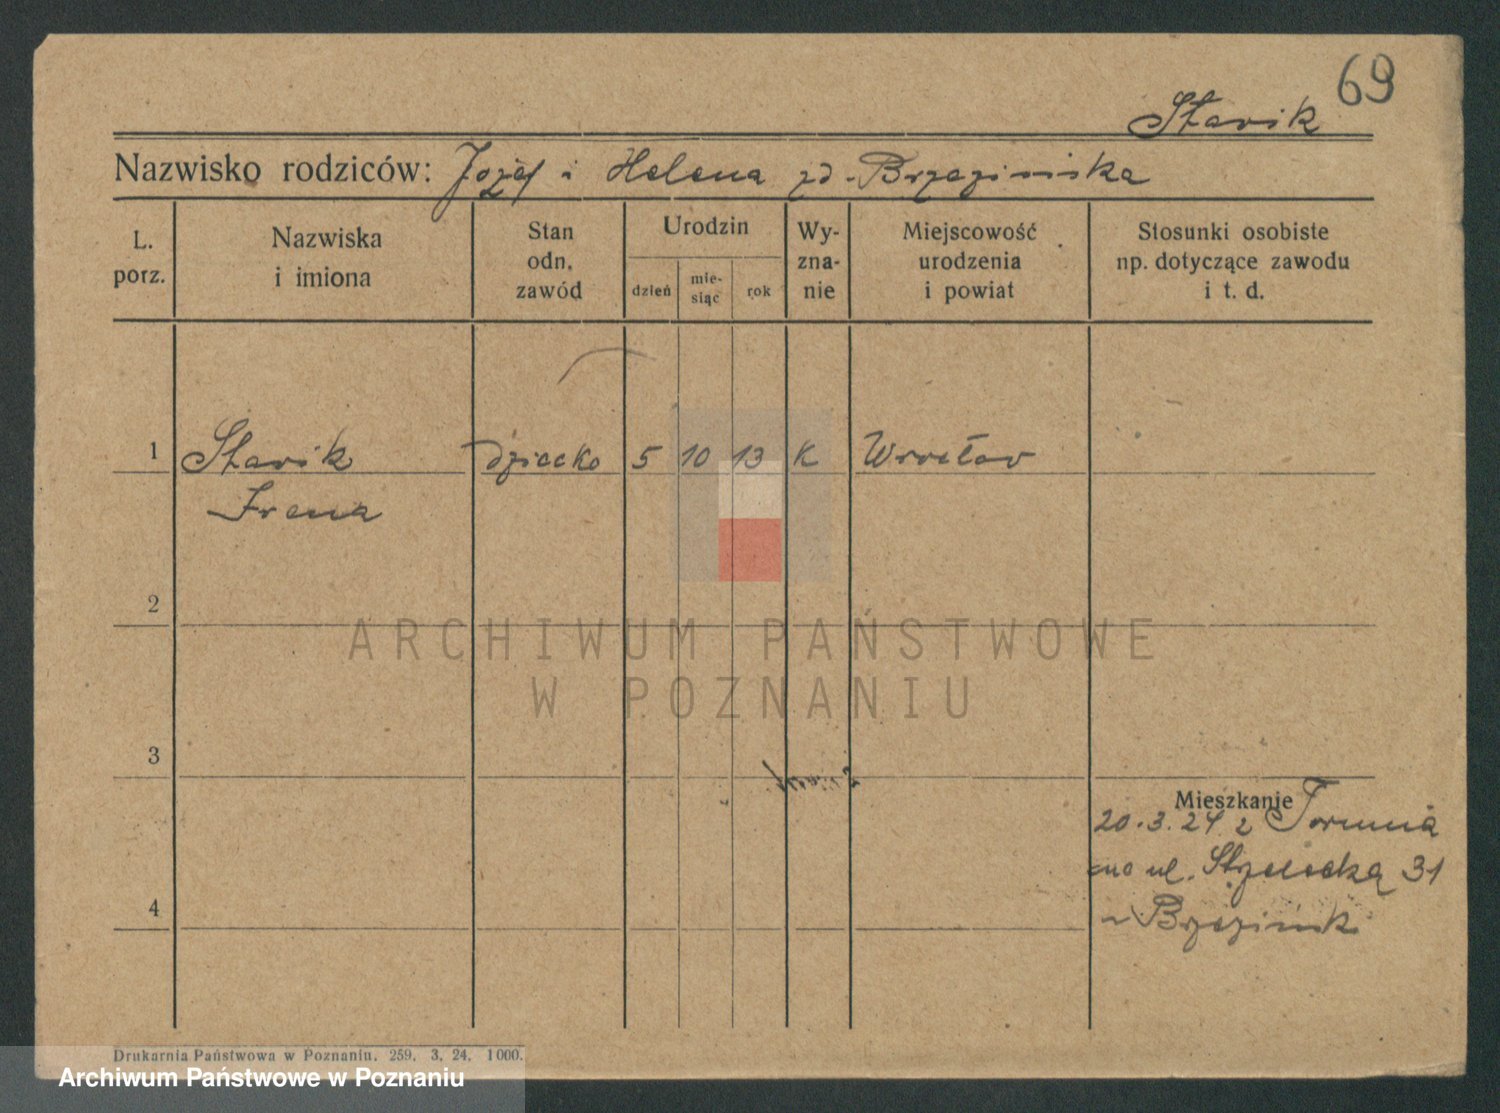 69
Stavik
Nazwisko rodziców: Józef i Helena zd. Brzezińska
L. porz.
Nazwiska i imiona
Stan odn. zawód
Urodzin
dzień
mie- siąc
rok
Wy- zna- nie
Miejscowość urodzenia i powiat
Stosunki osobiste np. dotyczące zawodu i t. d.
1 Stavik dziecko 5 10 13 K Wrocław
Irena
2
ARCHIWUM PAŃSTWOWE
W POZNANIU
3
Mieszkanie
20.3.24 z Torunia
na ul. Strzelecką 31
4
Drukarnia Państwowa w Poznaniu. 259. 3. 24. 1000.
Archiwum Państwowe w Poznaniu